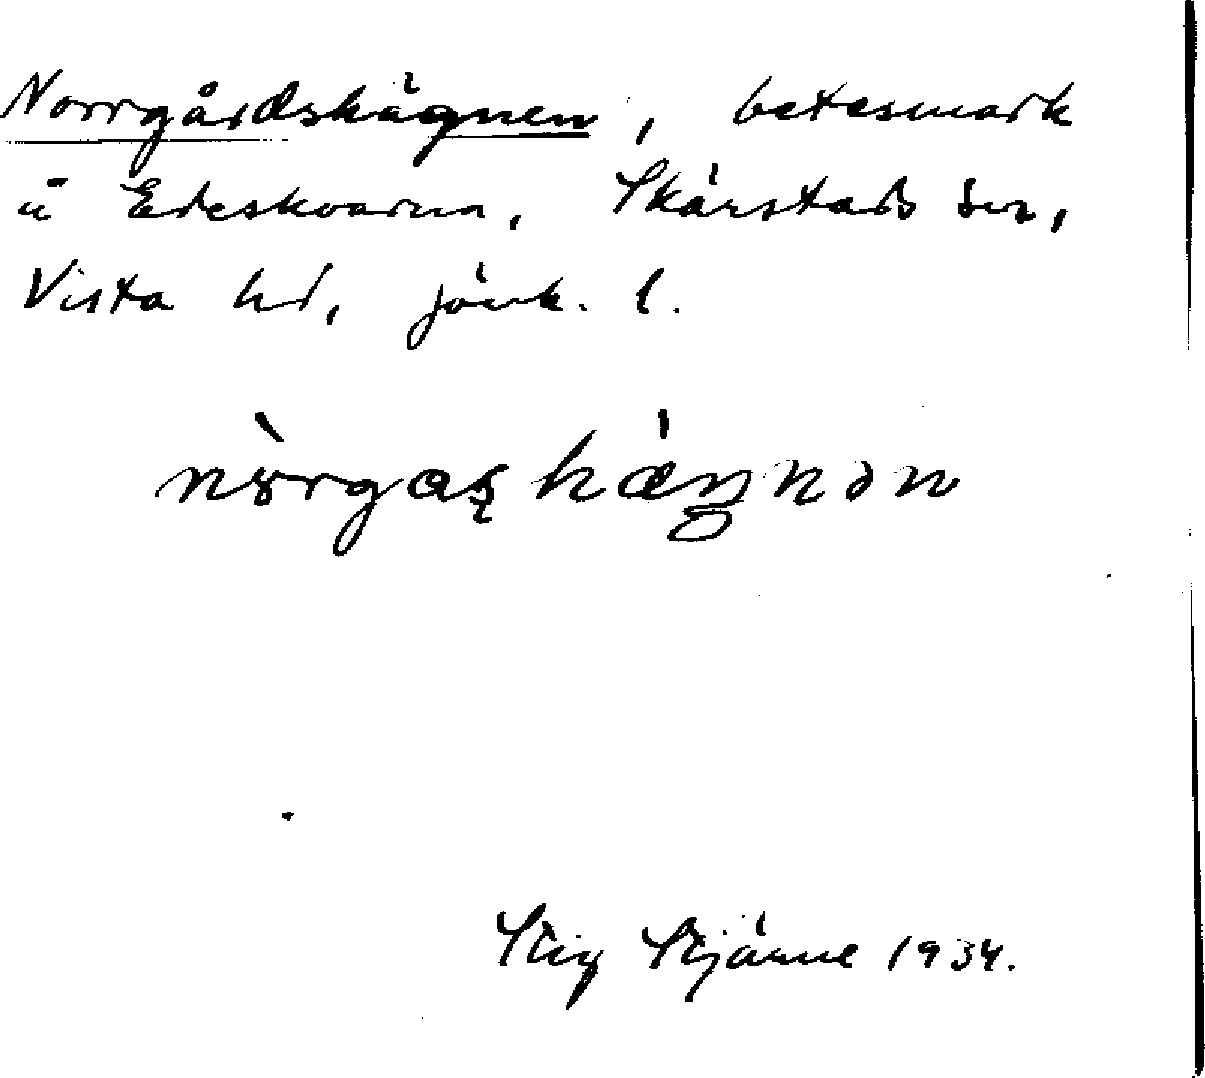 Norrgårdshägnen, betesmark
å Edeskvarna, Skärstads sn,
Vista hd, Jönk. l.
nòrgas hǽŋnən
Stig Stjärne 1934.